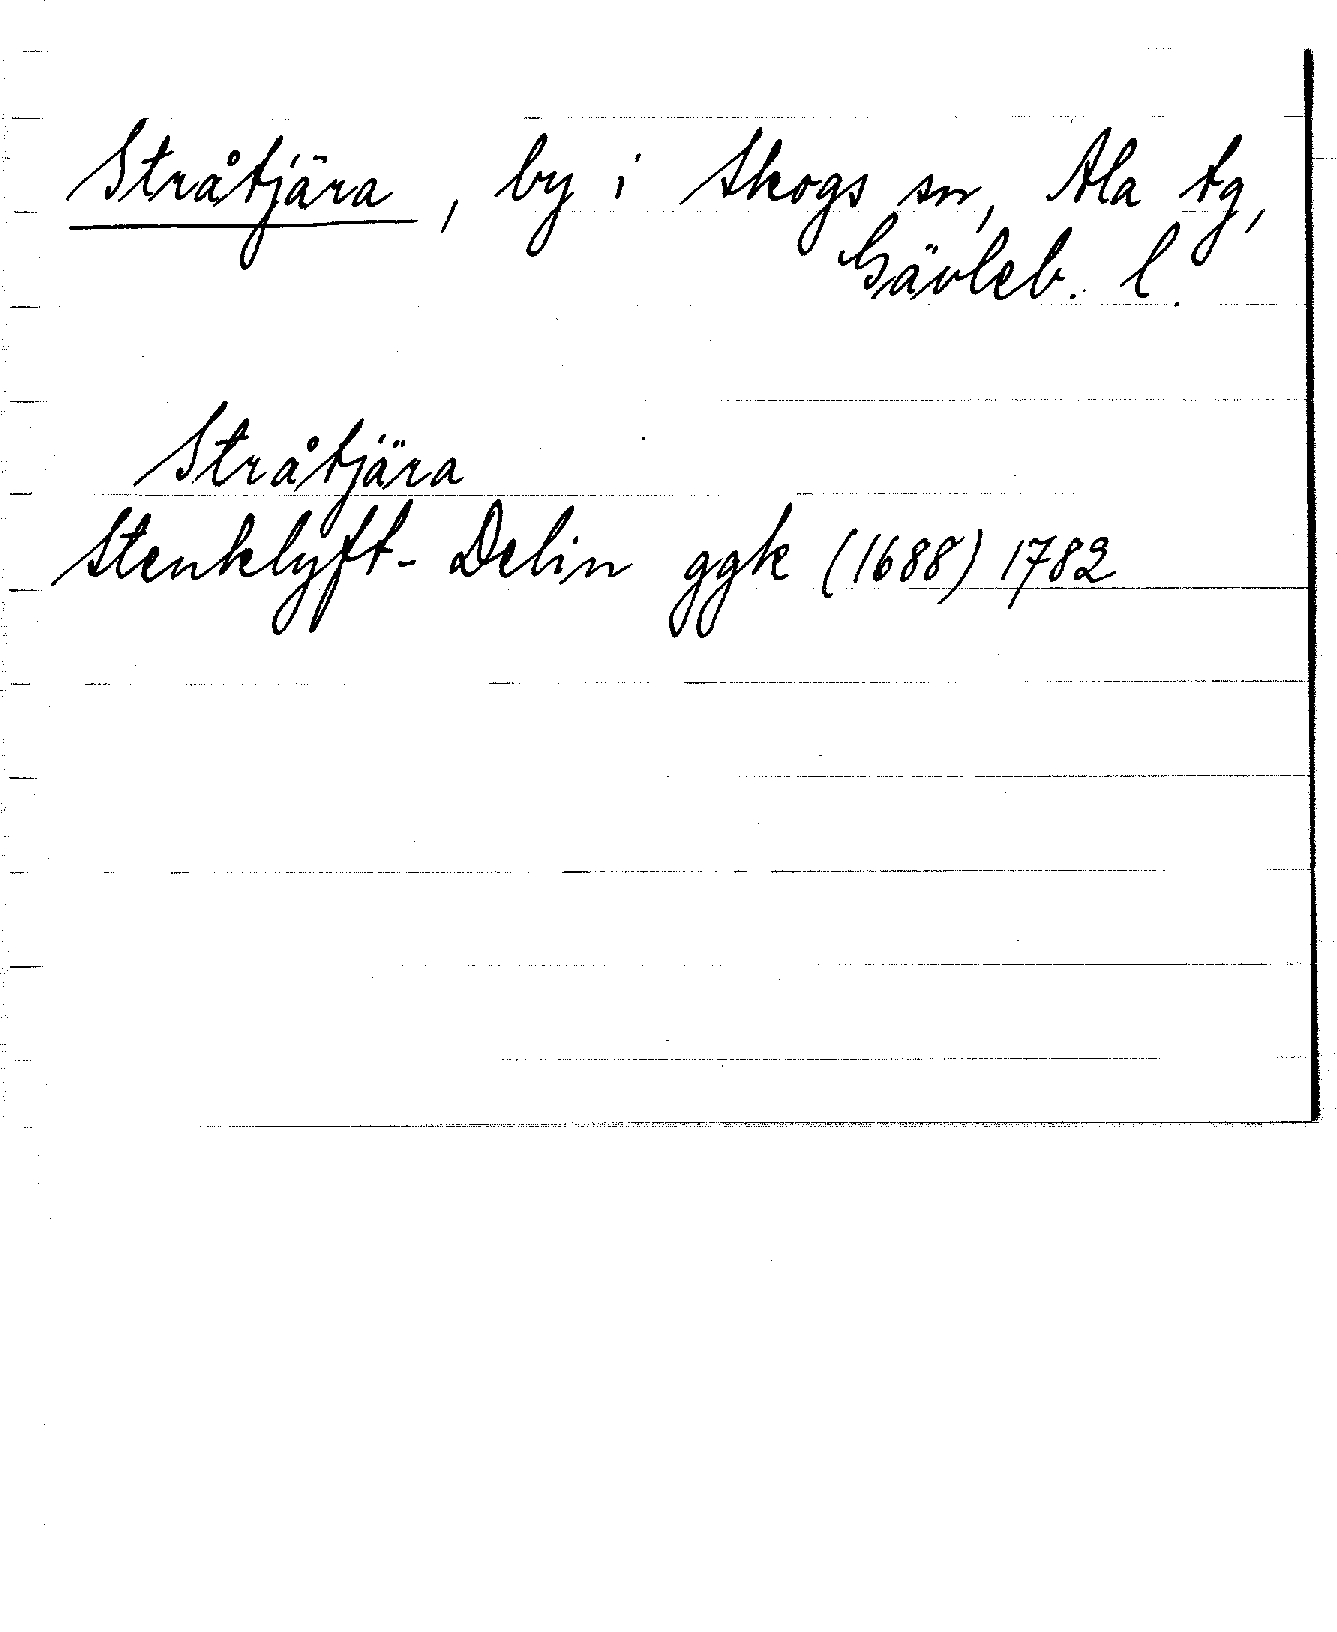 Stråtjära, by i Skogs sn, Ala tg,
Gävleb. l.
Stråtjära
Stenklyft- Delin ggk (1688) 1782